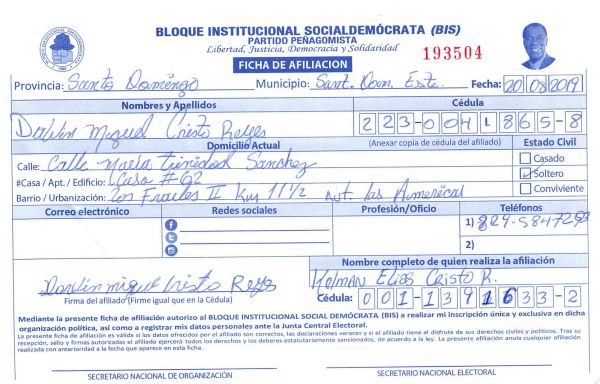 BLOQUE INSTITUCIONAL SOCIALDEMÓCRATA (BIS)
PARTIDO PEÑAGOMISTA
Libertad, Justicia, Democracia y Solidaridad
193504
FICHA DE AFILIACION
Provincia: Santo Domingo Municipio: Sant. Dom. Este. Fecha: 20/08/2019
Nombres y Apellidos Cédula
Miguel Cristo Reyes 223-004 865-8
Domicilio Actual (Anexar copia de cédula del afiliado) Estado Civil
Calle: Calle María trinidad Sanchez Casado
#Casa / Apt. / Edificio: Casa #62 Soltero
Barrio / Urbanización: Los Frailes II Km 11 1/2 Aut. las Americas Conviviente
Correo electrónico Redes sociales Profesión/Oficio Teléfonos
1) 829-584
2)
Nombre completo de quien realiza la afiliación
miguel Cristo Reyes Elias Cristo R.
Firma del afiliado (Firme igual que en la Cédula) Cédula: 001-139 633-2
Mediante la presente ficha de afiliación autorizo al BLOQUE INSTITUCIONAL SOCIAL DEMÓCRATA (BIS) a realizar mi inscripción única y exclusiva en dicha
organización política, así como a registrar mis datos personales ante la Junta Central Electoral.
La presente ficha de afiliación es valida si los datos ofrecidos por el afiliado son correctos, las declaraciones veraces y si el afiliado tiene el disfrute de sus derechos civiles y políticos. Tras su
recepción, sello y firmas autorizadas el afiliado ejercerá todos los derechos y los deberes estatutariamente sancionados, de acuerdo a la ley. La presente afiliación anula cualquier afiliación
realizada con anterioridad a la fecha que aparece en esta ficha.
SECRETARIO NACIONAL DE ORGANIZACIÓN SECRETARIO NACIONAL ELECTORAL